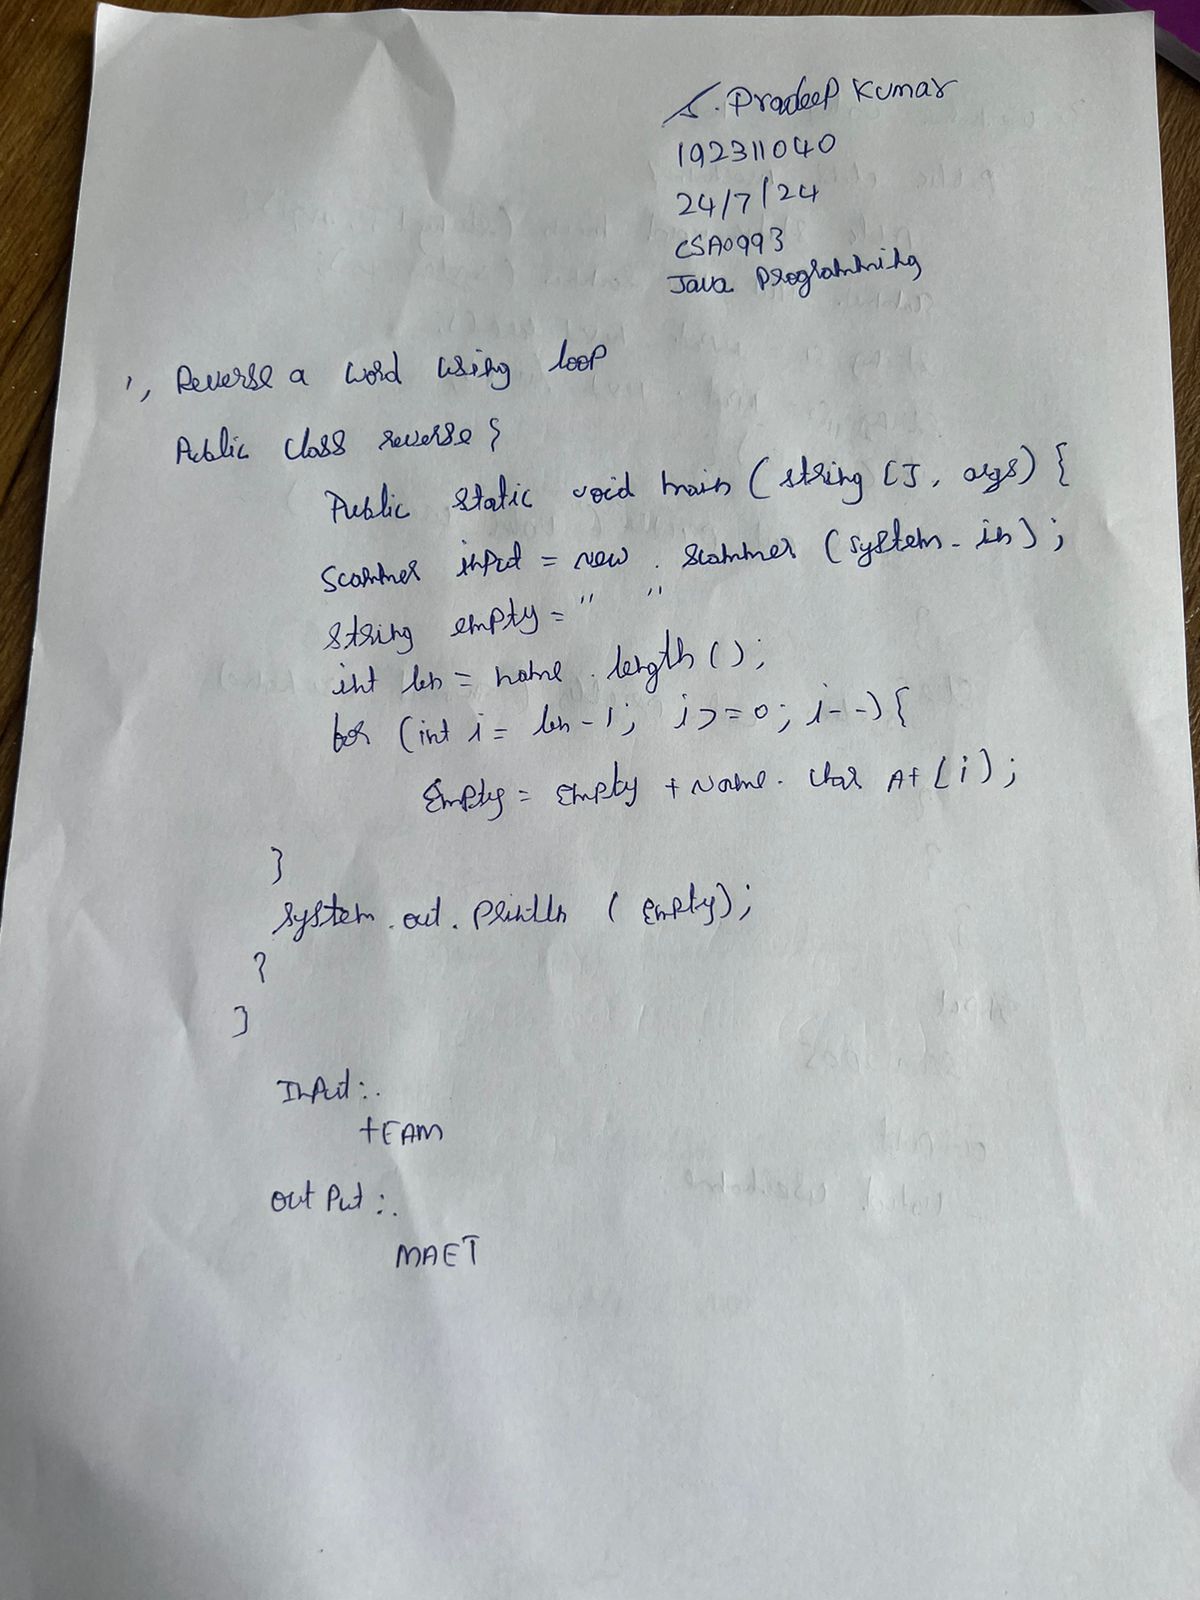 S. Pradeep Kumar
192311040
24/7/24
CSA0993
Java Programming
1, Reverse a word using loop
Public class reverse {
Public static void main (string [], args) {
Scanner input = new . scanner (system - in);
string empty = "  "
int len = name . length ();
for (int i = len - 1; i >= 0; i - -) {
Empty = Empty + Name. char At [i);
}
system . out . println ( Empty);
}
}
Input :.
tEAM
out Put :.
MAET